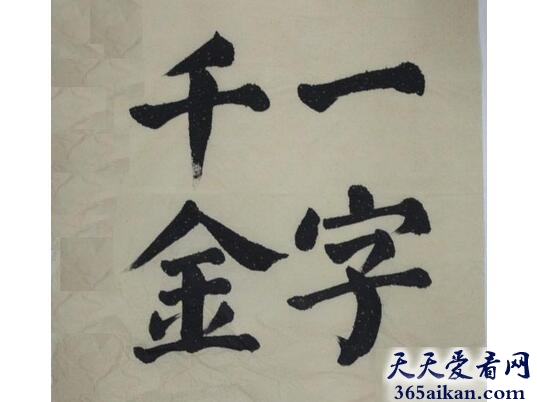 一字
千金
天天爱看网
365aikan.com